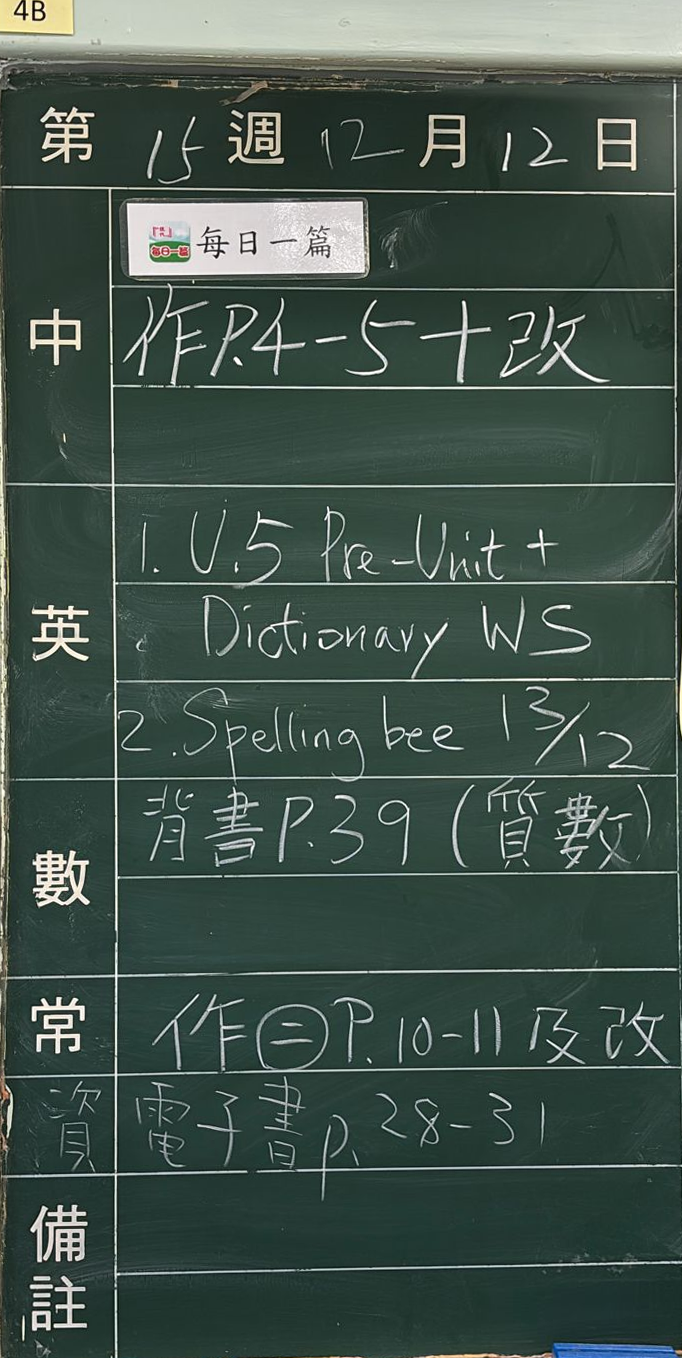 4B
第 15 週 12 月 12 日
每日一篇
每日一篇
中
作P.4-5+改
英
1. U.5 Pre-Unit +
Dictionary WS
2. Spelling bee 13/12
數
背書P.39(質數)
常
作㊁P.10-11及改
資
電子書p.28-31
備註